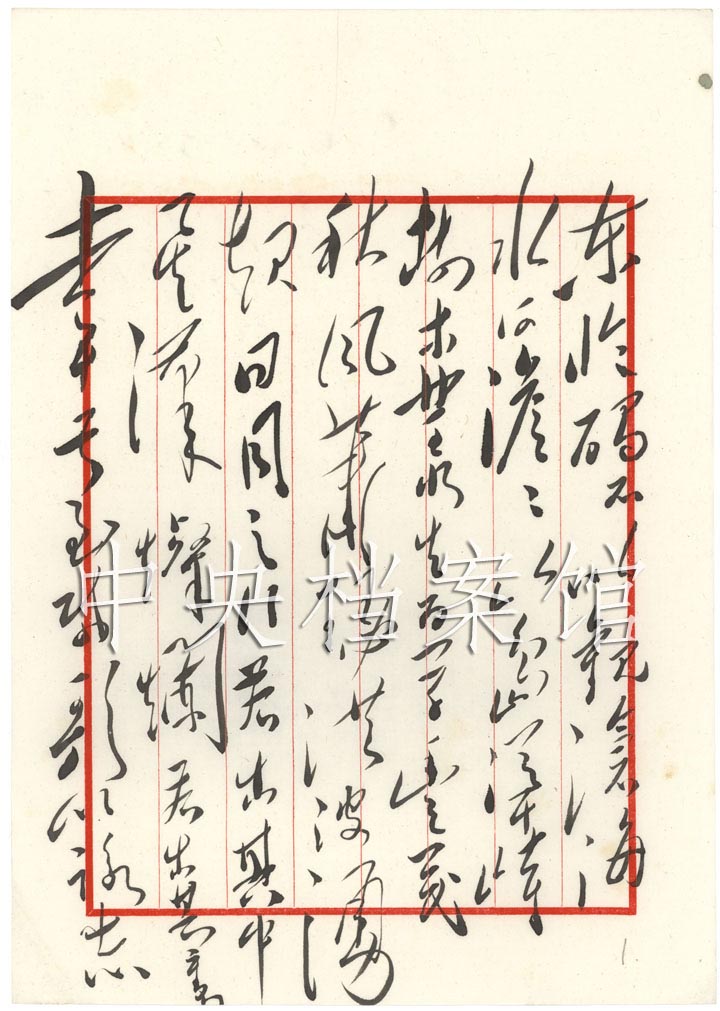 东临碣石以观沧海
水何澹澹山岛竦峙
树木丛生百草丰茂
秋风萧瑟洪波涌
起日月之行若出其中
星汉燦爛若出其裏
幸甚至哉歌以咏志
1.
中央档案馆